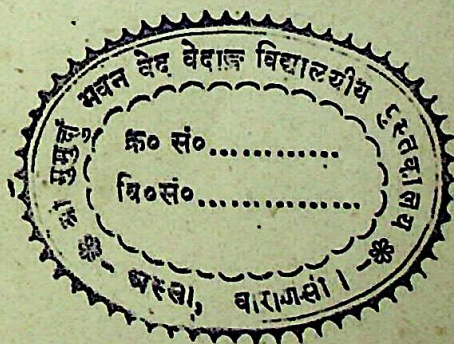 श्री मुमुक्षु भवन वेद वेदाङ्ग विद्यालयीय पुस्तकालय
क्र० सं०..............
वि०सं०................
अस्सी, वाराणसी।